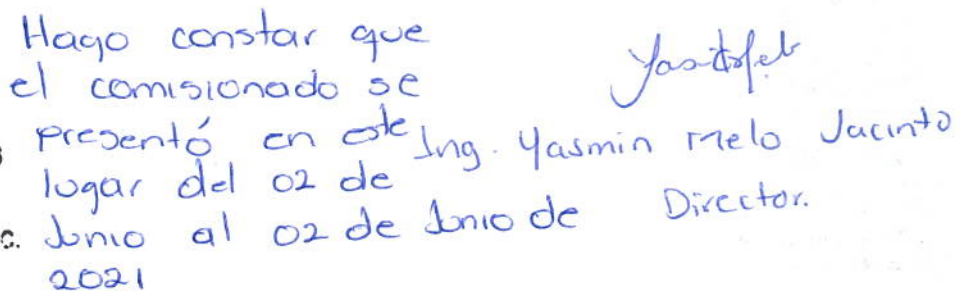 Hago constar que
el comisionado se
presentó en este
lugar del 02 de
Junio al 02 de Junio de
2021
Ing. Yasmin Melo Jacinto
Director.